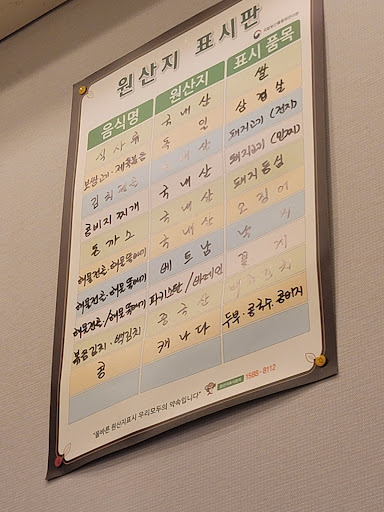 원산지 표시판
음식명 원산지 표시 품목
식사류 국내산 쌀
보쌈고기·제육볶음 독일 삼겹살
김치찌개 국내산 돼지고기 (전지)
콩비지찌개 국내산 돼지고기
돈가스 국내산 돼지등심
해물전골·해물뚝배기 국내산 오징어
해물전골·해물뚝배기 베트남 낙지
해물전골/해물뚝배기 파키스탄/바레인 꽃게
볶음김치·백김치 중국산 배추김치
콩 캐나다 두부·콩국수·콩비지
"올바른 원산지표시 우리모두의 약속입니다" 1588-8112